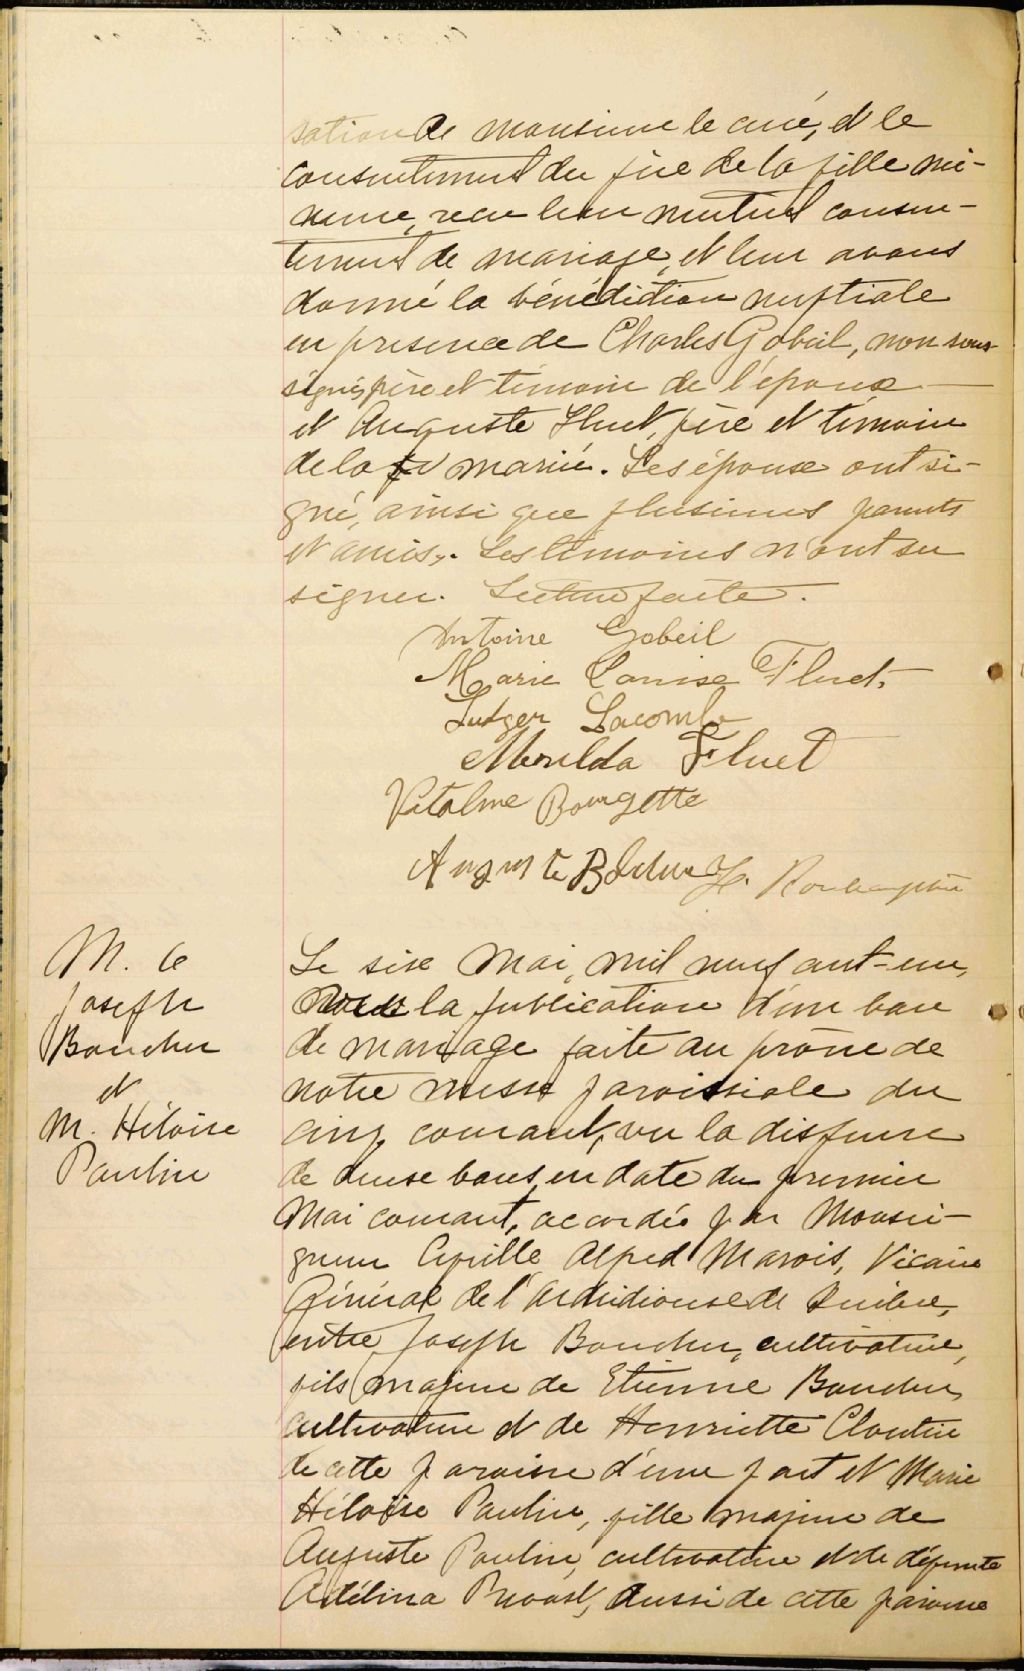 sation de monsieur le curé, et le
consentement du père de la fille mi-
neure, reçu leur mutuel consen-
tement de mariage, et leur avons
donné la bénédiction nuptiale
en présence de Charles Gobeil, non sous-
signé, père et témoin de l'époux
et Auguste Fluet, père et témoin
de la mariée. Les époux ont si-
gné, ainsi que plusieurs parents
et amis. Les témoins n'ont su
signer. Lecture faite.
Antoine Gobeil
Marie Louise Fluet
Ludger Lacombe
Merilda Fluet
Vitaline Bourgette
Auguste
M. 6
Joseph
Boucher
et
M. Héloïse
Paulin
Le six Mai, mil neuf cent-un,
vu la publication d'un ban
de mariage faite au prône de
notre messe paroissiale du
cinq courant, vu la dispense
de deux bans, en date du premier
Mai courant, accordée par Monsei-
gneur Cyrille Alfred Marois, Vicaire
Général de l'archidiocèse de Québec,
entre Joseph Boucher, cultivateur,
fils majeur de Etienne Boucher,
cultivateur et de Henriette Cloutier
de cette paroisse d'une part et Marie
Héloïse Paulin, fille majeure de
Auguste Paulin, cultivateur et de défunte
Adélina Provost, aussi de cette paroisse